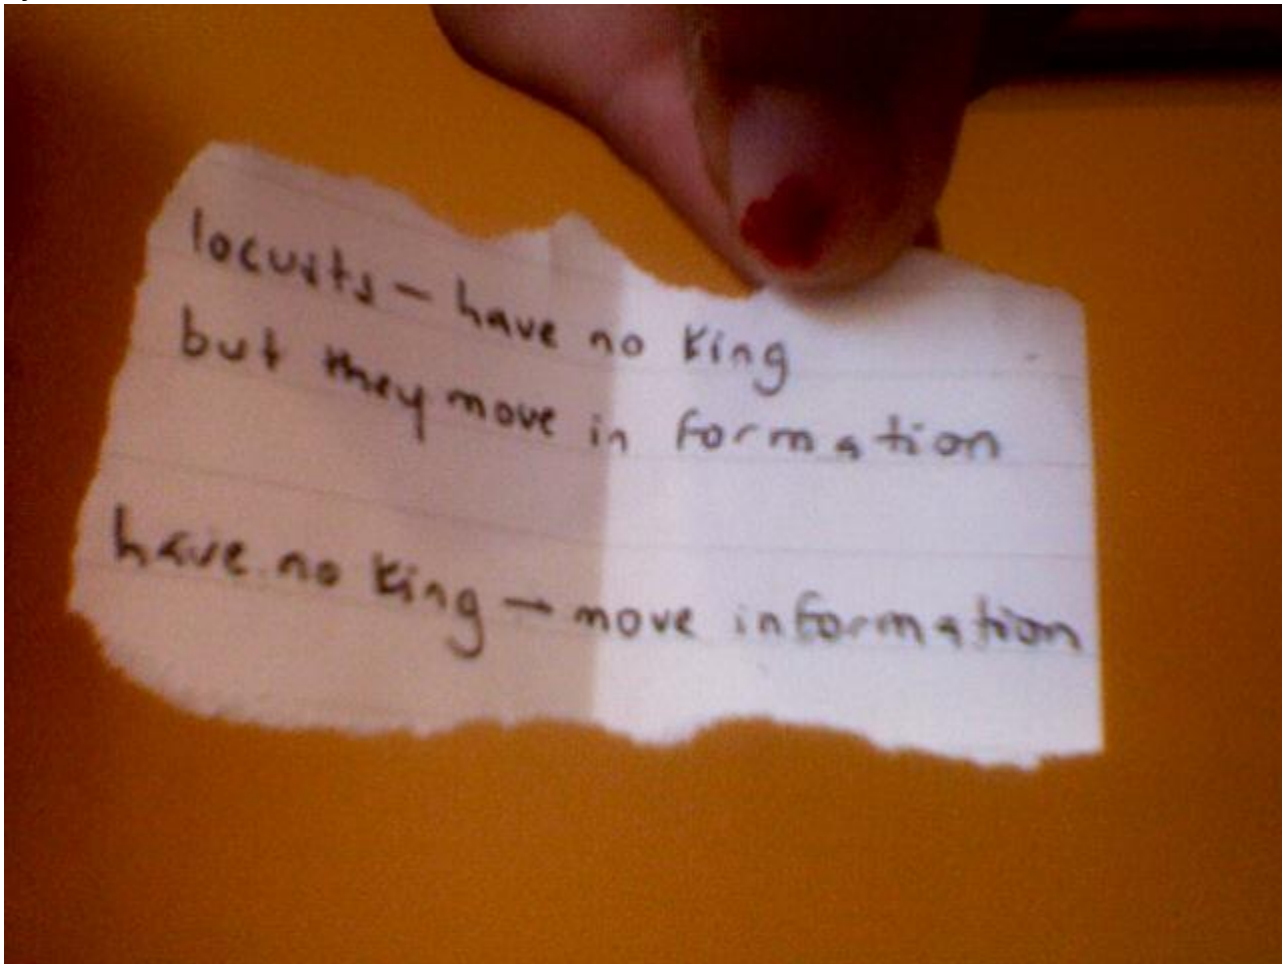 locusts – have no king
but they move in formation
have no king → move information